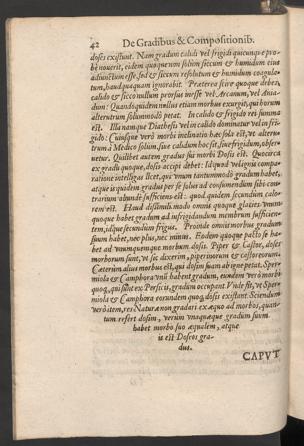 42 De Gradibus & Compositionib.
doses existunt. Nam gradum calidi vel frigidi quicunque pro-
bè nouerit, eidem quoque non solùm siccum & humidum eius
adiunctum esse, sed & siccum resolutum & humidum coagula-
tum, haud quaquam ignorabit. Præterea scire quoque debes,
calido & sicco nullum prorsus inesse vel Arcanum, vel Anua-
dum: Quando quidem nullus etiam morbus exurgit, qui horum
alterutrum solummodò petat. In calido & frigido rei summa
est. Illa namque Diathesis vel in calido dominatur vel in fri-
gido: Cuiusque verò morbi inclinatio hæc sola est, vt alteru-
trum à Medico solùm, siue calidum hoc sit, siue frigidum, obser-
uetur. Quilibet autem gradus sui morbi Dosis est. Quocirca
ex gradu quoque, dosis accipi debet: Idque
ratione intelligas licet, qui vnum tantummodò gradum habet,
atque is quidem gradus per se solus ad consumendum sibi con-
trarium abundè sufficiens est: quod quidem secundum calo-
rem est. Haud dissimili modo omnis quoque glacies vnum
quoque habet gradum ad infrigidandum membrum sufficien-
tem, idque secundum frigus. Proinde omnis morbus gradum
suum habet, nec plus, nec minus. Eodem quoque pacto se ha-
bet ad vnumquemque morbum dosis. Piper & Castor, doses
morborum sunt, vt sic dixerim, piperinorum & castoreorum.
Cæterùm alius morbus est, qui dosim suam ab igne petat. Sper-
miola & Camphora vnū habent gradum, eundem verò morbi
quoq, qui sunt ex Persicis, gradum occupant. Vnde fit, vt Sper-
miola & Camphora eorundem quoq, dosis existant. Sciendum
verò item, res Naturæ non gradari ex æquo ad morbos, quan-
tum refert dosim, verùm vnaquæque gradum suum
habet morbo suo æqualem, atque
is est Doseos gra-
dus.
CAPVT